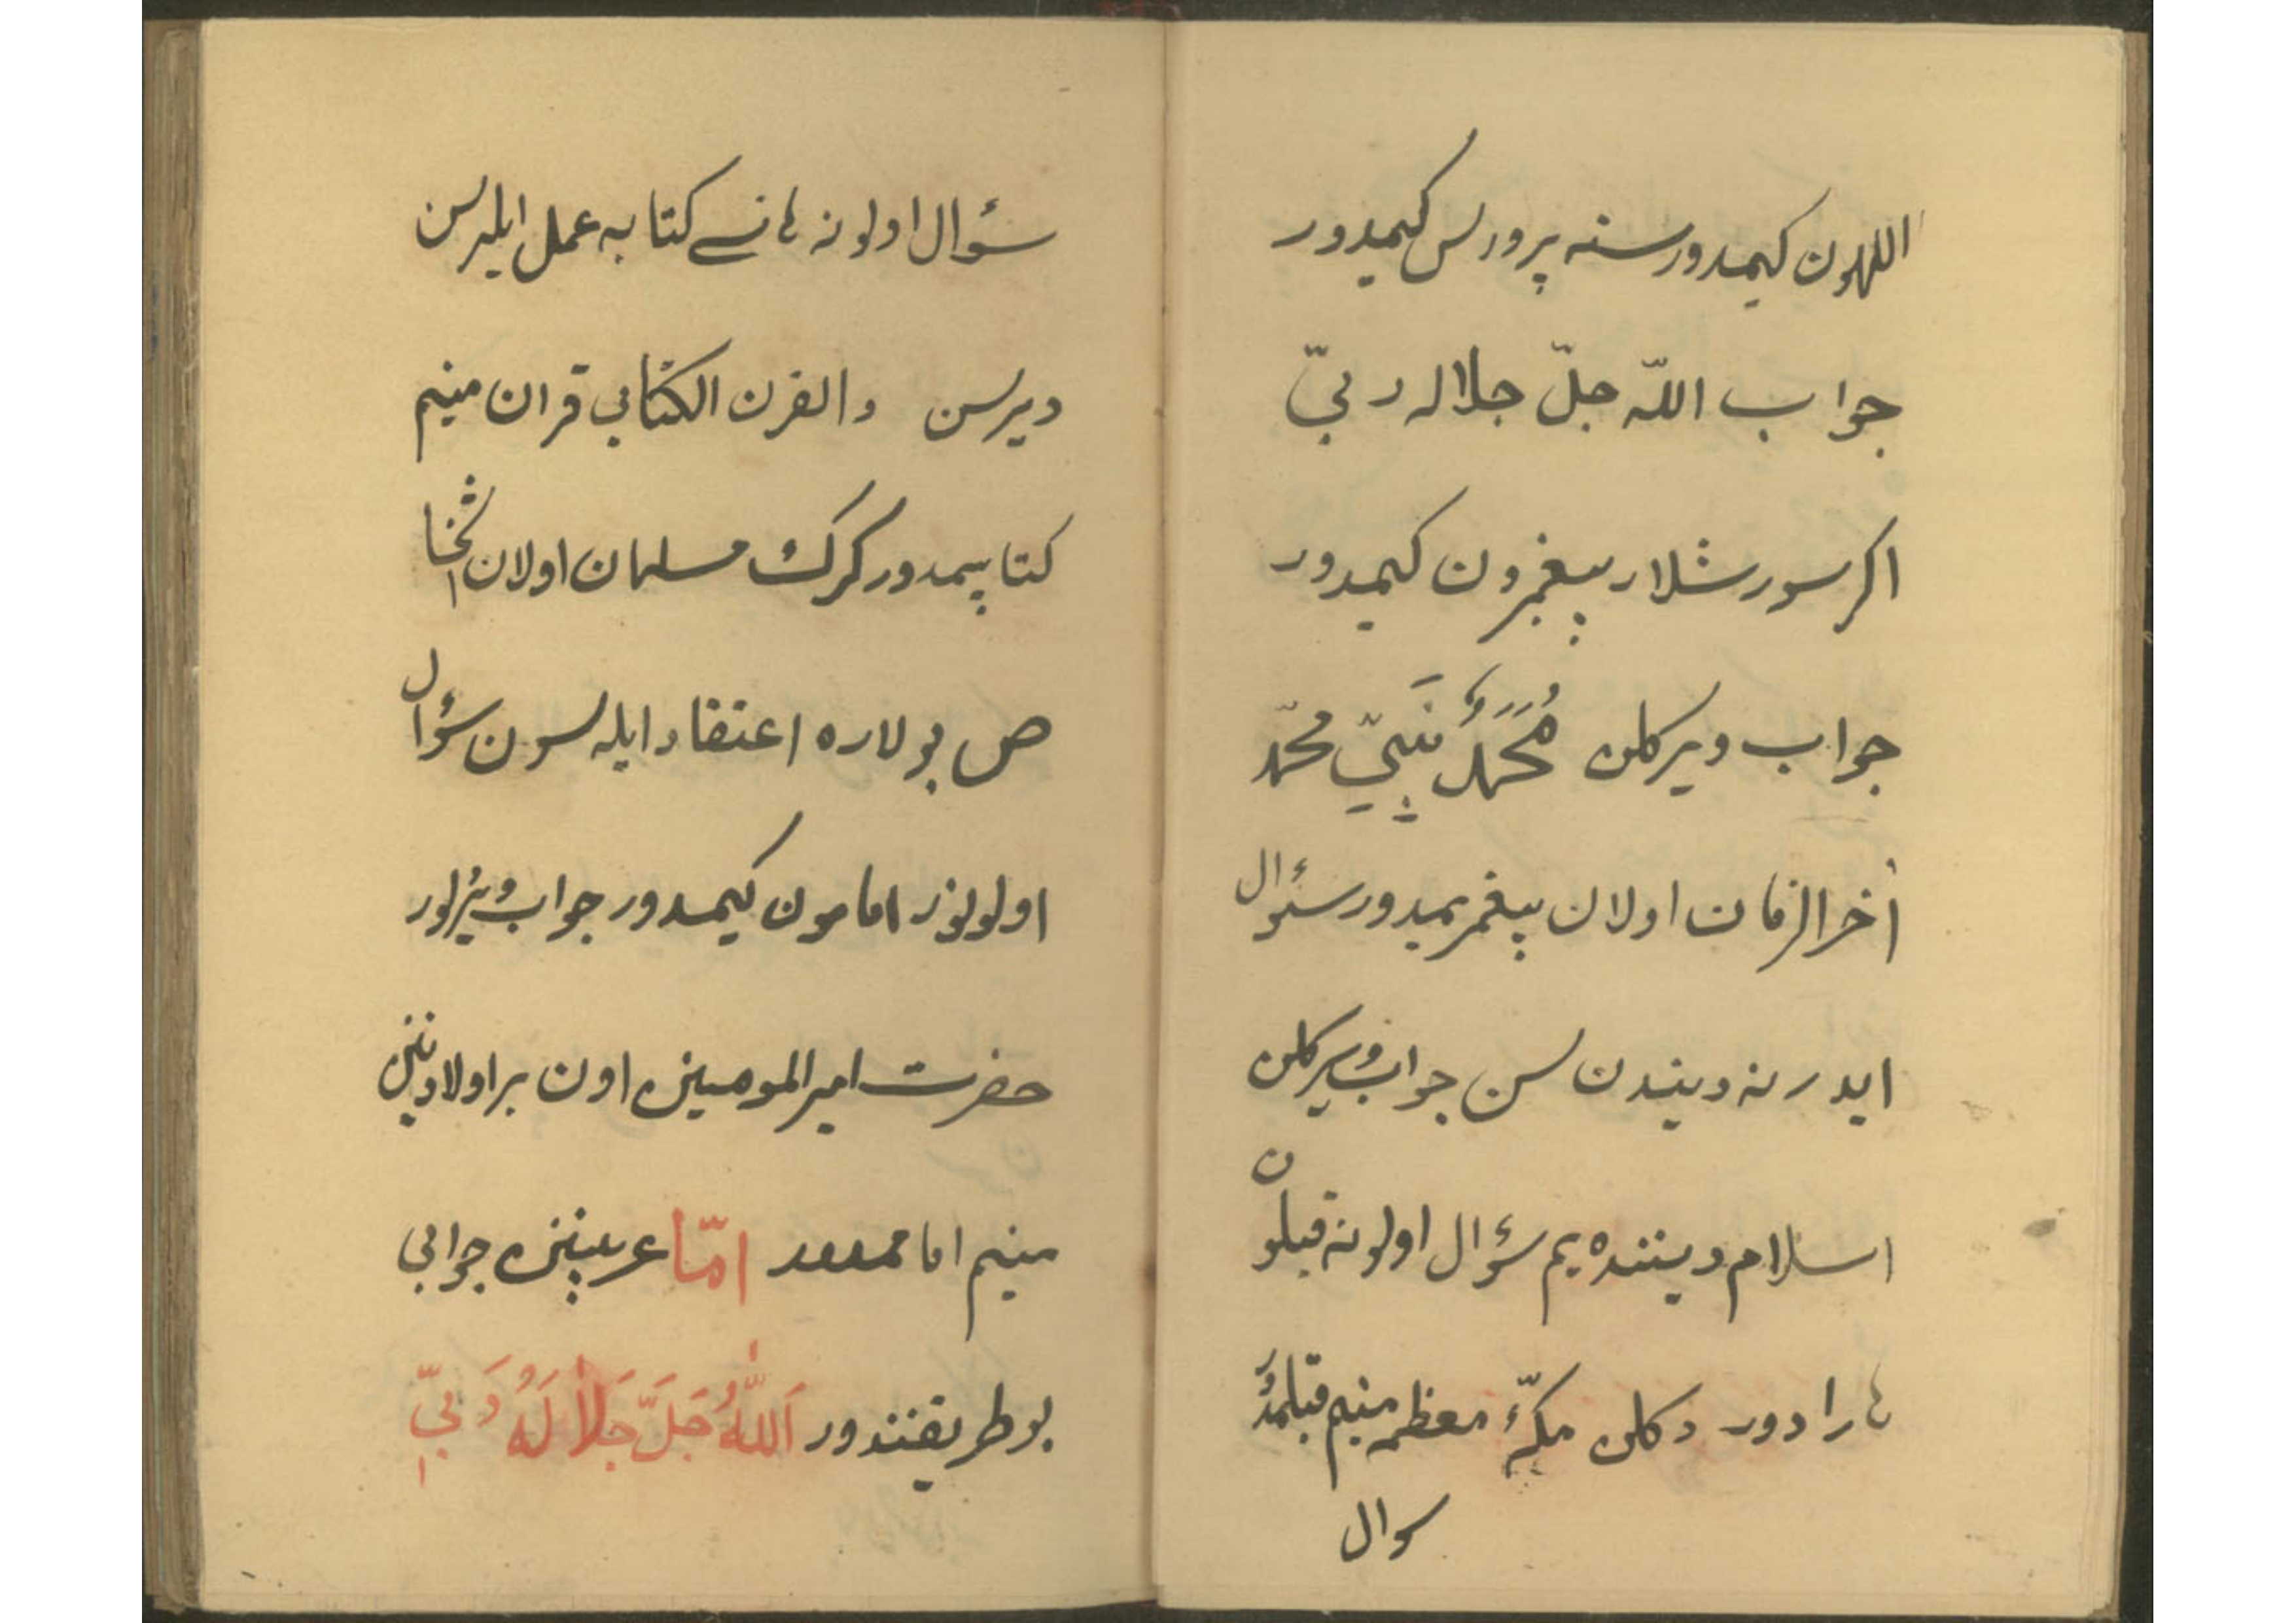 اللهون کیمدور سنه پرورلس کیمیدور
جواب اللّه جلّ جلاله ربیّ
اکر سورشلار پیغمبرون کیمیدور
جواب ویرکلن مُحَمَدٌ نَبیّ محمّد
آخرالزمان اولان پیغمبریمیدور سئوال
ایدر نه دیندن سن جواب ویرکلن
اسلام دیننده یم سؤال اولونه قبلون
هارادور دکلن مکّهٔ معظمه منیم قبلمدُر
سوال
سؤال اولونه هانسے کتابه عمل ایلیرسن
دیرسن والقرن الکتابی قران منیم
کتابیمدور کرک مسلمان اولان اشخا
ص بولاره اعتقاد ایله سون سؤال
اولونور امامون کیمدور جواب ویرلور
حضرت امیرالمومنین اون بر اولادینن
منیم امامدور امّا عربینن جوابی
بوطریقنندور اَللّٰهُ جَلَّ جَلاٰلَهُ رَبیّ